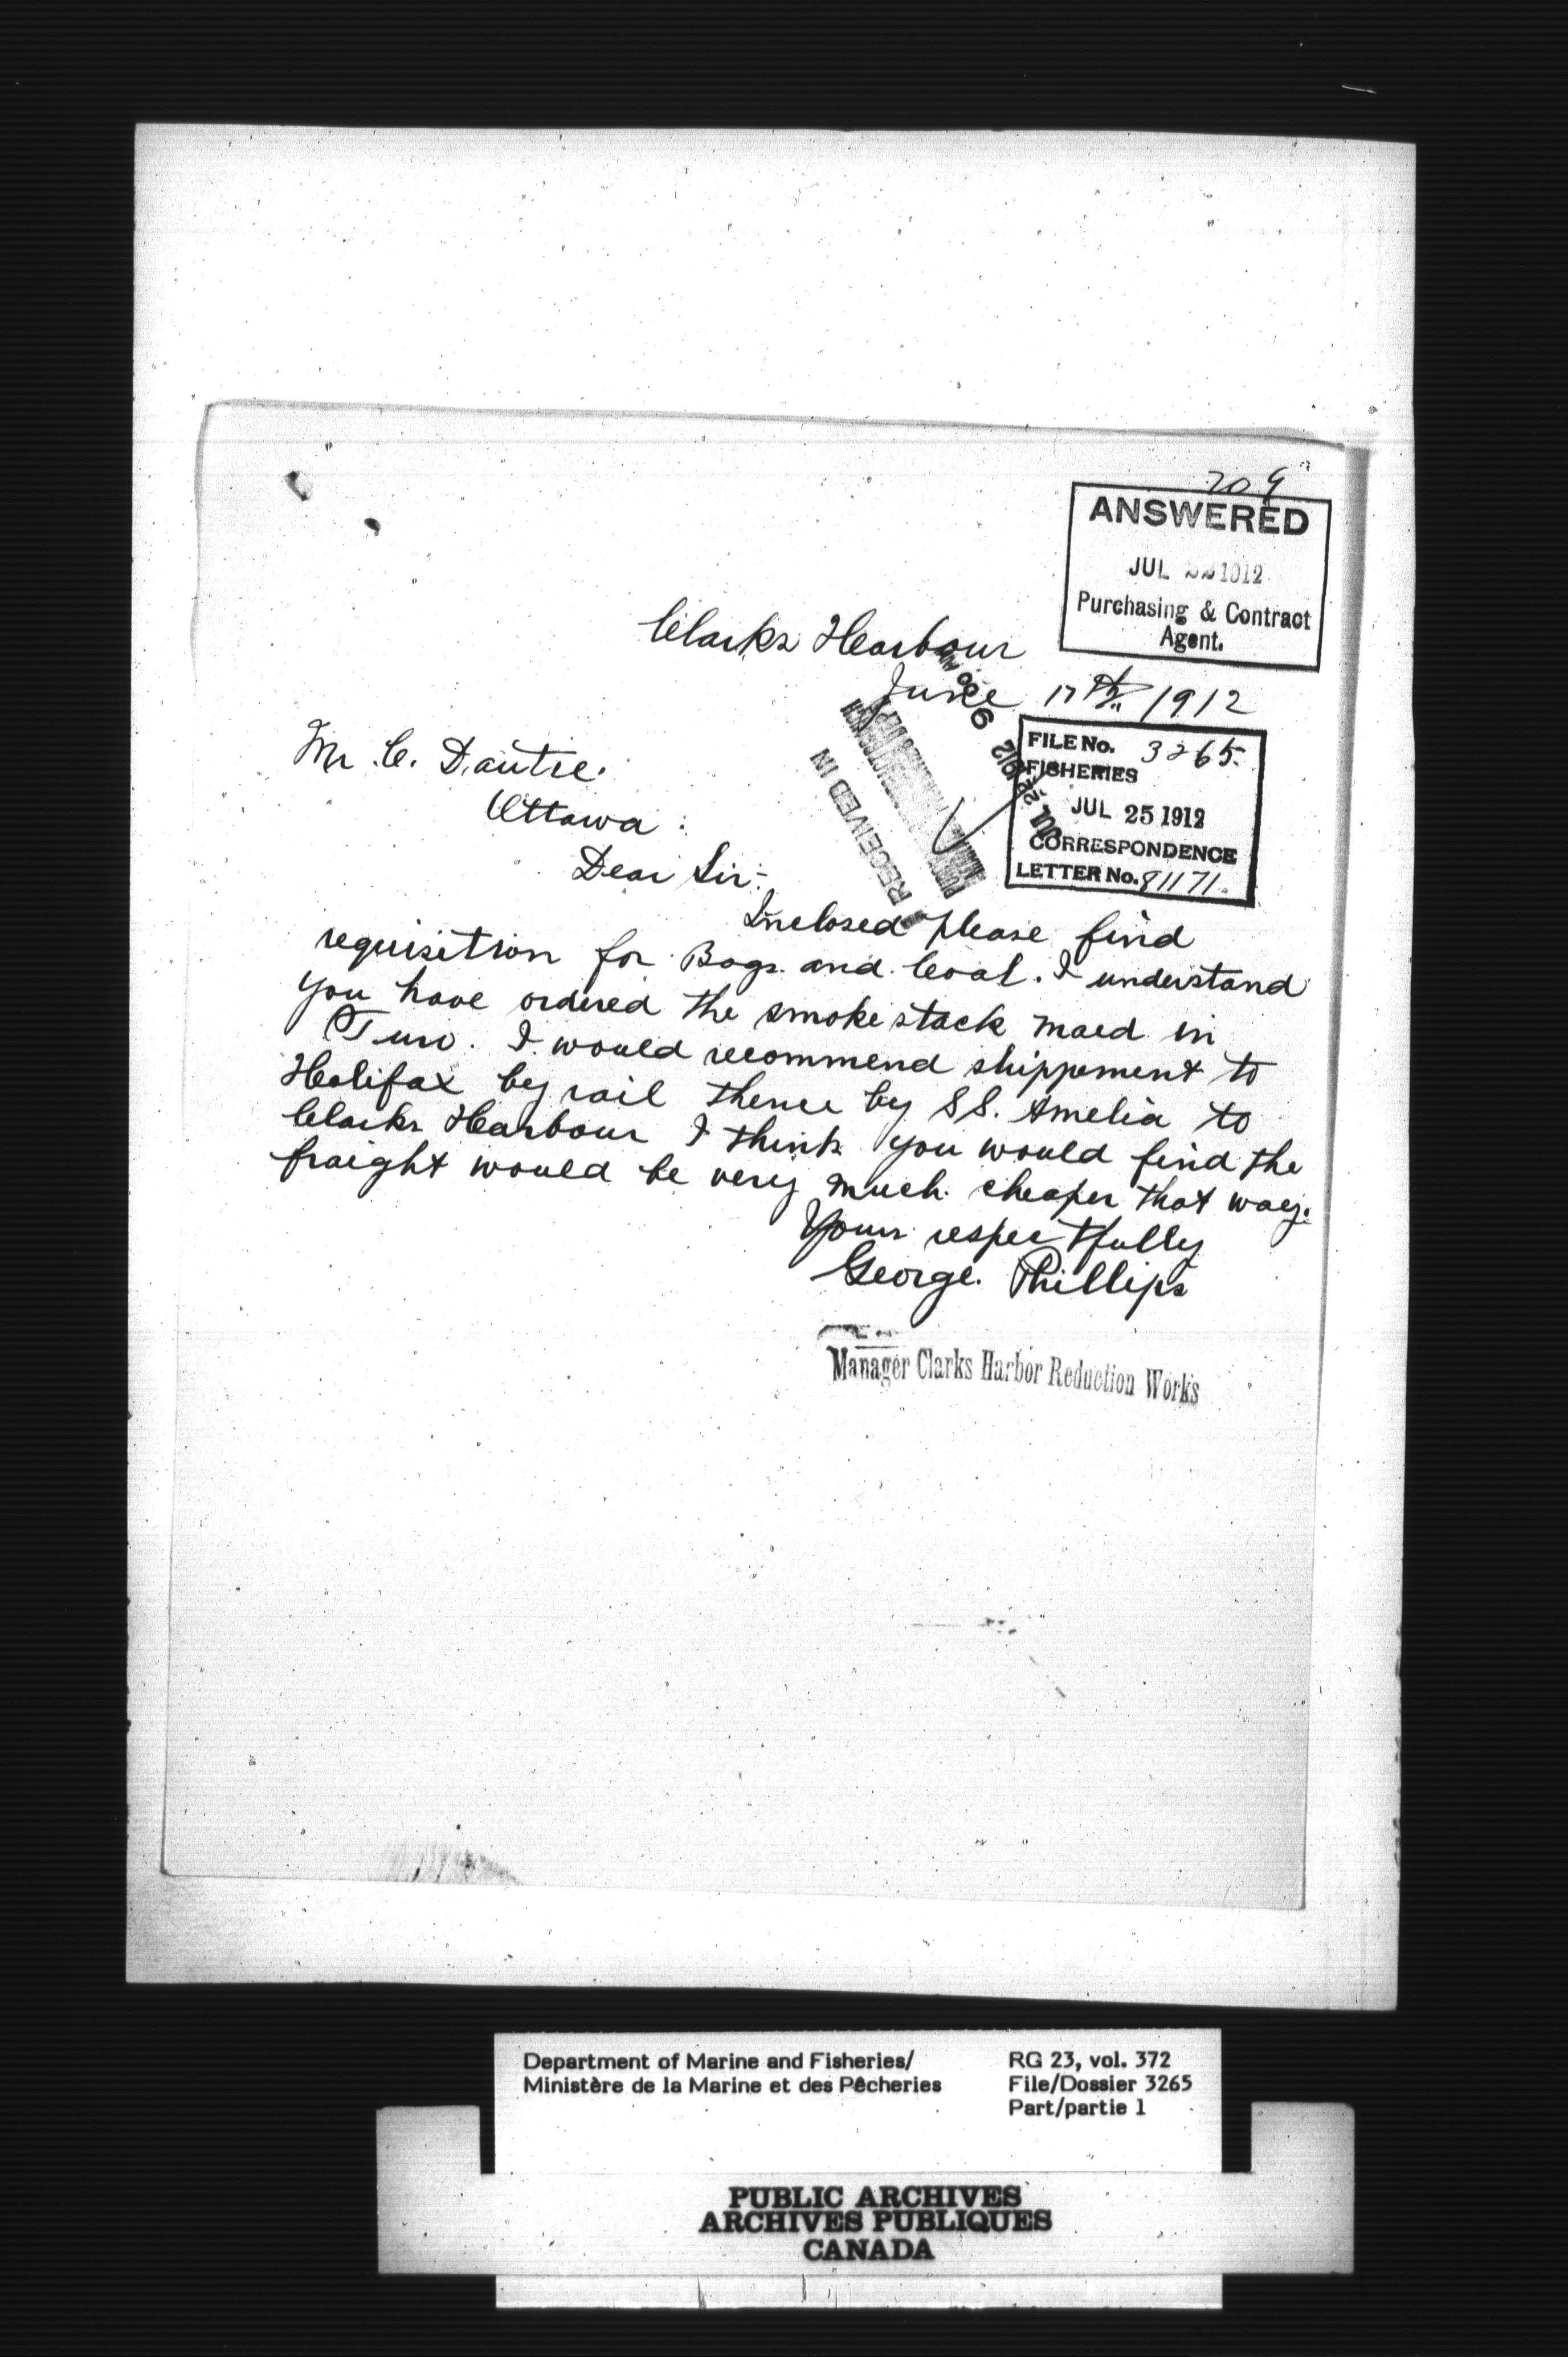 209
ANSWERED
JUL 22 1912
Purchasing & Contract
Agent.
Clarks Hearbour
June 17th 1912
Mr. C. Dautre.
Ottawa:
Dear Sir:-
FILE No. 3265.
FISHERIES
JUL 25 1912
CORRESPONDENCE
LETTER No. 81171.
RECEIVED IN
Inclosed please find
requisition for Bags. and Coal. I understand
you have ordered the smoke stack maed in
Turo. I would recommend shippement to
Healifax by rail thence by SS. Amelia to
Clarks Hearbour I think you would find the
fraight would be very much cheaper that way.
Yours respectfully
George. Phillips
Manager Clarks Harbor Reduction Works
Department of Marine and Fisheries/
Ministère de la Marine et des Pêcheries
RG 23, vol. 372
File/Dossier 3265
Part/partie 1
PUBLIC ARCHIVES
ARCHIVES PUBLIQUES
CANADA